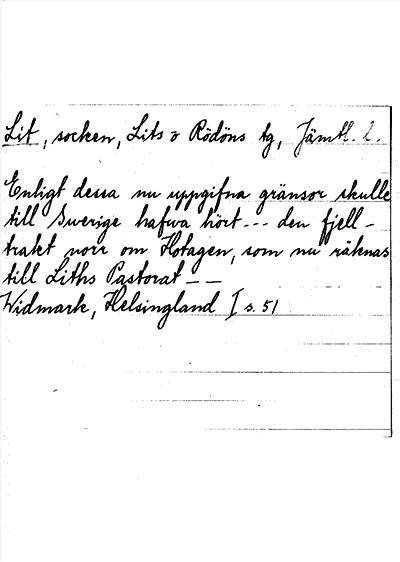 Lit, socken, Lits o Rödöns tg, Jämtl. l.
Enligt dessa nu uppgifna gränsor skulle
till Swerige hafwa hört --- den fjell-
trakt norr om Hotagen, som nu räknas
till Liths Pastorat --
Widmark, Helsingland I s. 51